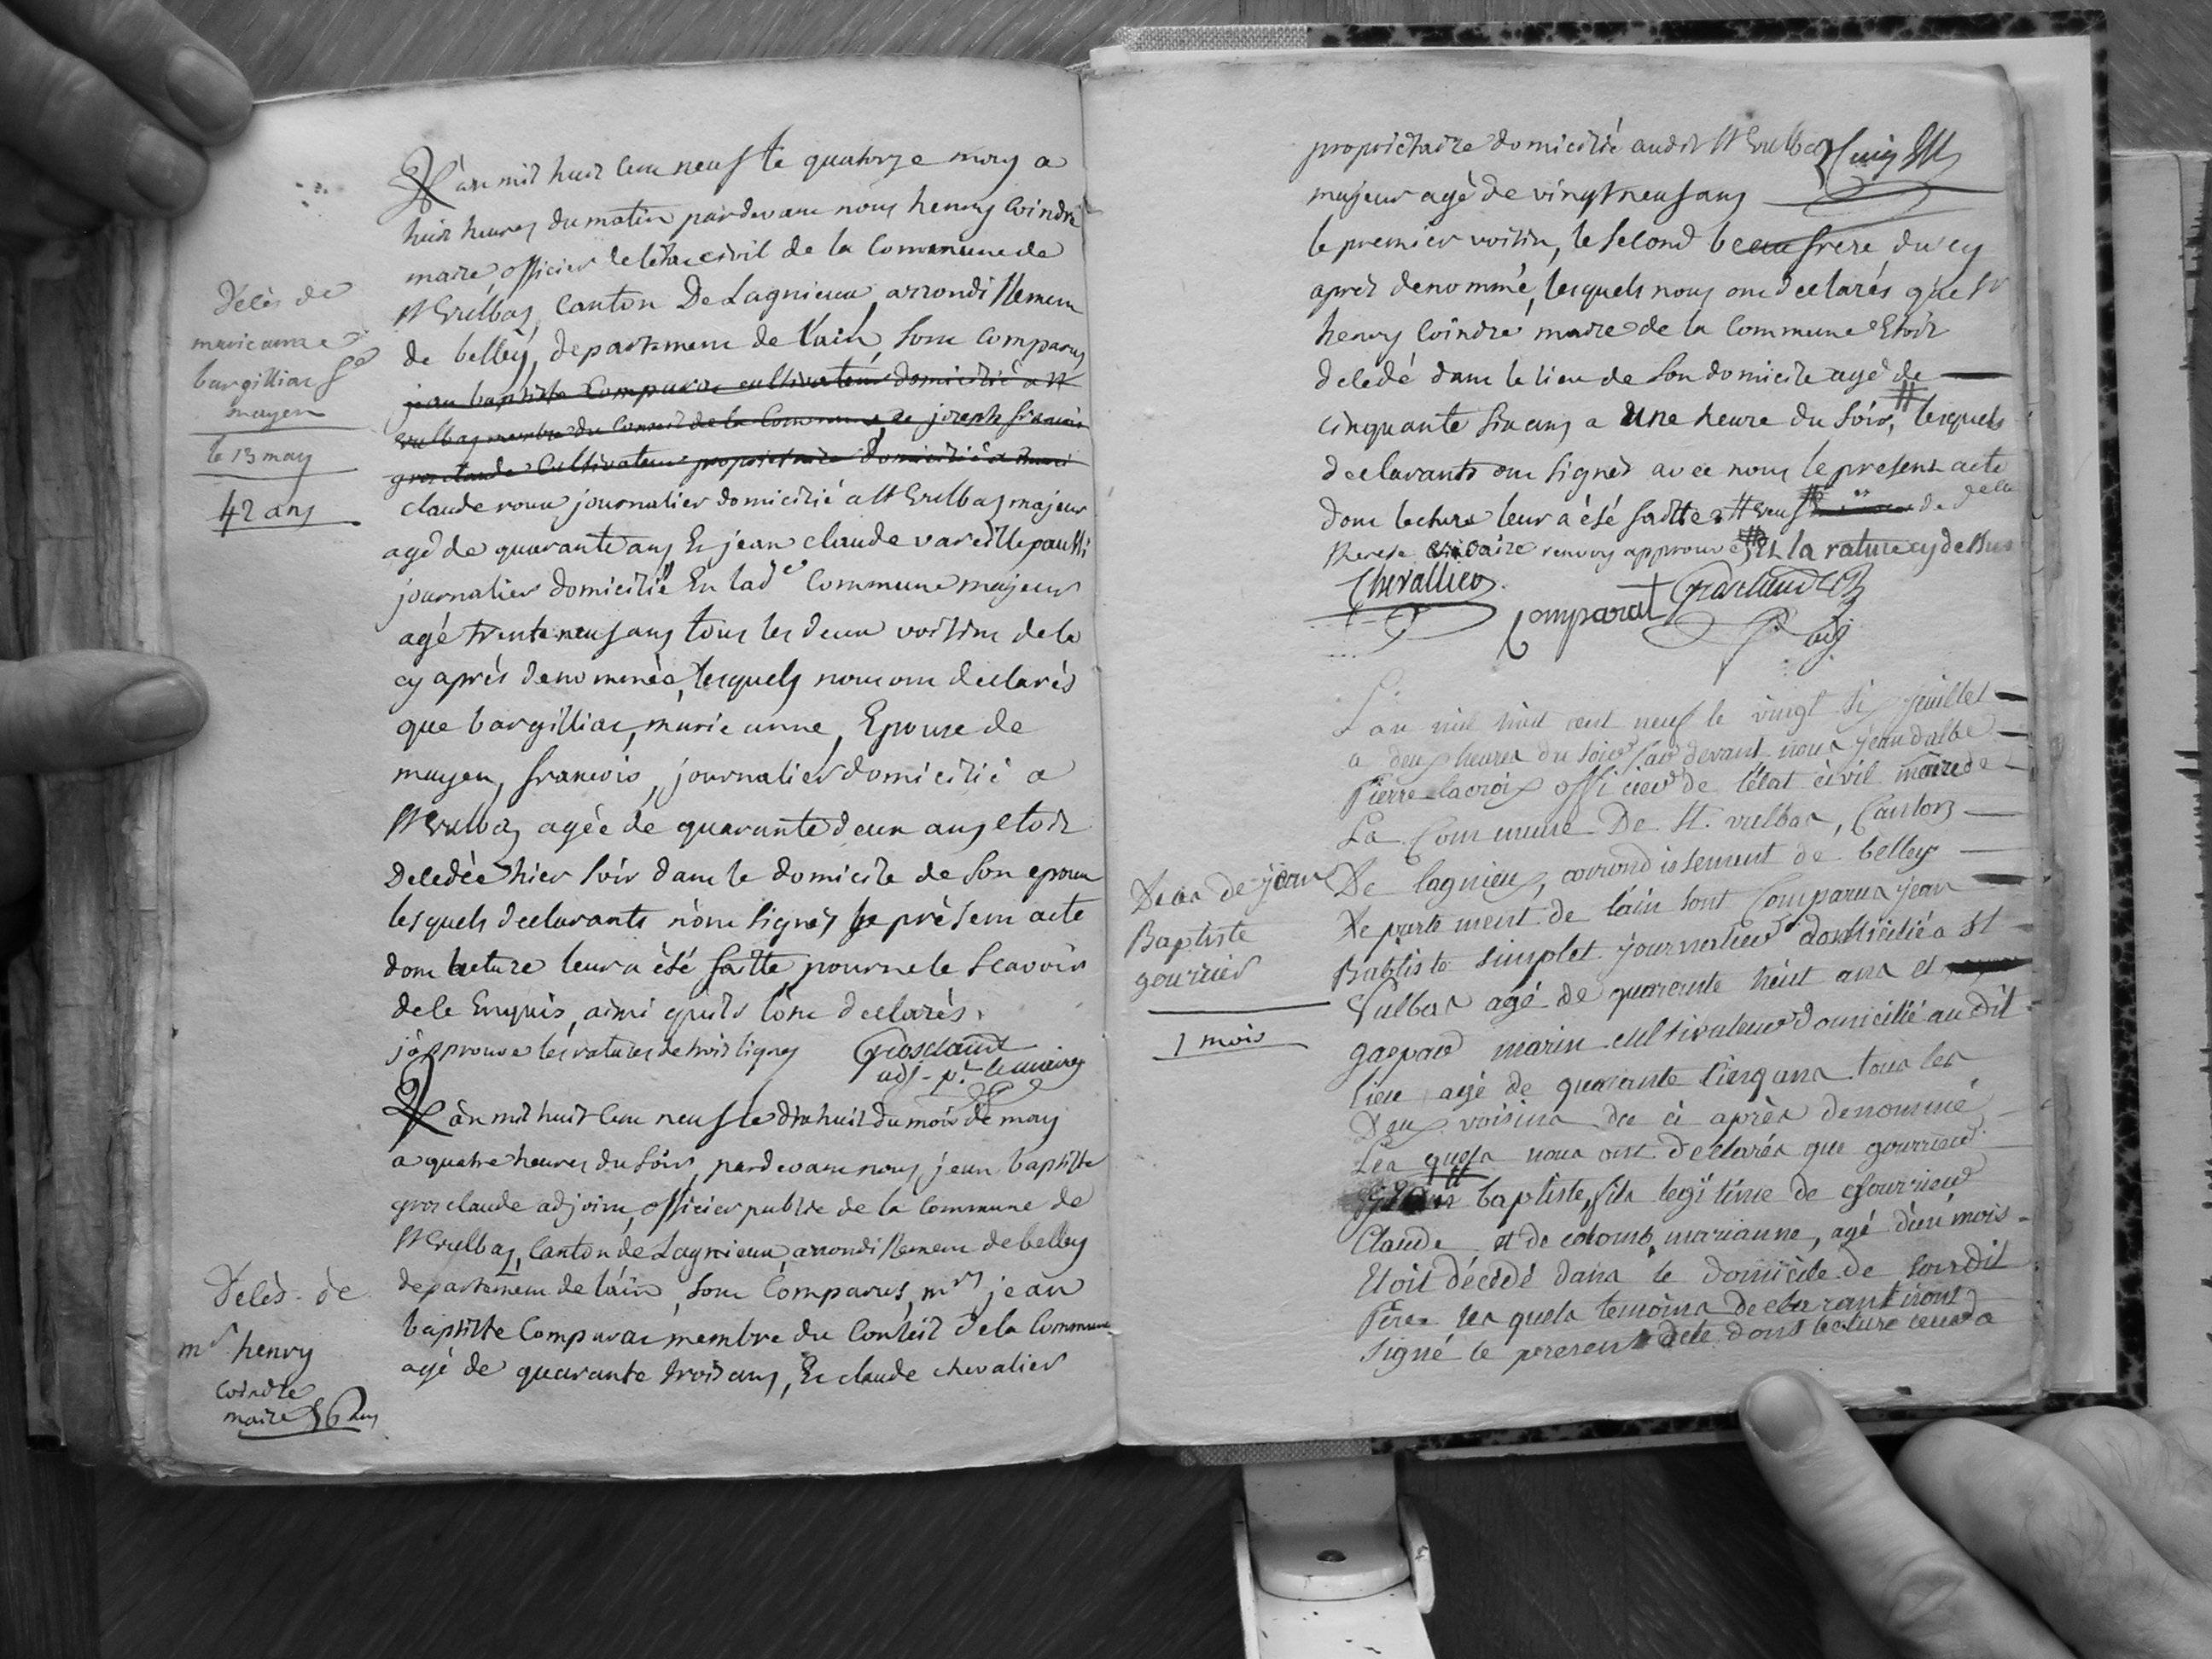 L'an mil huit cent neuf le quatorze may a
huit heures du matin pardevant nous henry Coindre
maire officier de letat civil de la Commune de
St Vulbas, Canton De Lagnieux, arrondissement
de belley, departement de l'ain, sont comparus
jean baptiste Comparat cultivateur domicilié a St
vulbas membre du Conseil de la Commune, et joseph francois
grosclaude Cultivateur proprietaire domicilié a
claude roux journalier domicilié a St Vulbas majeur
agé de quarante ans Et jean claude vareille paussi
journalier domicilié En lade Commune majeur
agé trente neuf ans tous les deux voisins de la
cy après denommée, lesquels nous ont declarés
que bargilliat, marie anne, Epouse de
mayen, francois, journalier domicilié a
St Vulbas agée de quarante deux ans etoit
decedée hier soir dans le domicile de son epoux
lesquels declarants n'ont signés le présent acte
dont lecture leur a été faitte pour ne le scavoir
de le Enquis, ainsi qu'ils l'ont declarés.
j'approuve les ratures de trois lignes Grosclaude
adj. pr. le maire
Décès de
marie anne
bargilliat fe
mayen
le 13 may
42 ans
L'an mil huit cent neuf le dix huit du mois de may
a quatre heures du soir, pardevant nous, jean baptiste
grosclaude adjoint, officier public de la Commune de
St Vulbas, Canton de Lagnieux arrondissement de belley
departement de l'ain, sont Comparus, mrs jean
baptiste Comparat membre du Conseil de la Commune
agé de quarante trois ans, Et claude chevalier
Décès de
mr henry
Coindre
maire 56 ans
proprietaire domicilié audit St Vulbas
majeur agé de vingt neuf ans
le premier voisin, le second beau frere, du cy
après denommé, lesquels nous ont declarés que Sr
henry Coindre maire de la Commune Etoit
decedé dans le lieu de son domicile agé de
cinquante six ans a une heure du soir, # lesquels
declarants ont signés avec nous le present acte
dont lecture leur a été faitte # veuf de
therese renvoy approuvé et la rature cy dessus
Chevallier Comparat Grosclaude
adj
L'an mil huit cent neuf le vingt six juillet
a deux heures du soir par devant nous jean
Pierre lacroix officier de l'état civil maire de
La Commune De St. vulbas, Canton
De lagnieux, arrondissement de belley
Departement de l'ain sont Comparus jean
Baptiste simplet journalier domicilié a St
Vulbas agé de quarente huit ans et
gaspard marin cultivateur domicilié au dit
lieu agé de quarante cinq ans tous les
Deux voisins du ci après denommé
Les quels nous ont declarés que gourrieu
jean baptiste, fils legitime de gourrieu
Claude et de colomb marianne, agé d'un mois
Etoit décédé dans le domicile de sondit
Père les quels temoins declarant n'ont
signé le present acte dont lecture leur a
Deces de jean
Baptiste
gourrieu
1 mois